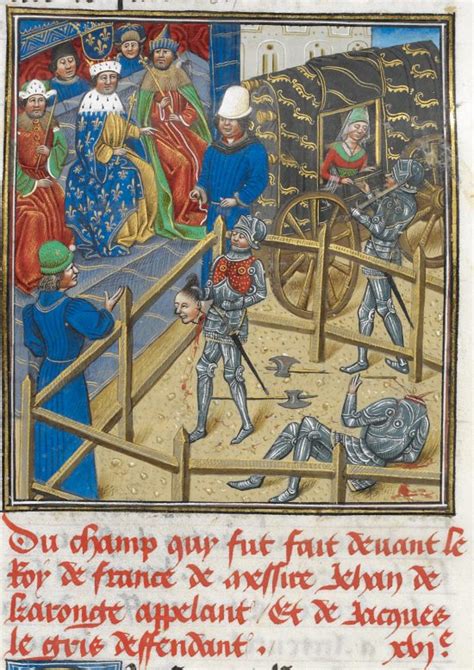 Du champ quy fut fait deuant le
Roy de france de messire Jehan de
Karonge appelant Et de Jacques
le gris deffendant . xvj.e